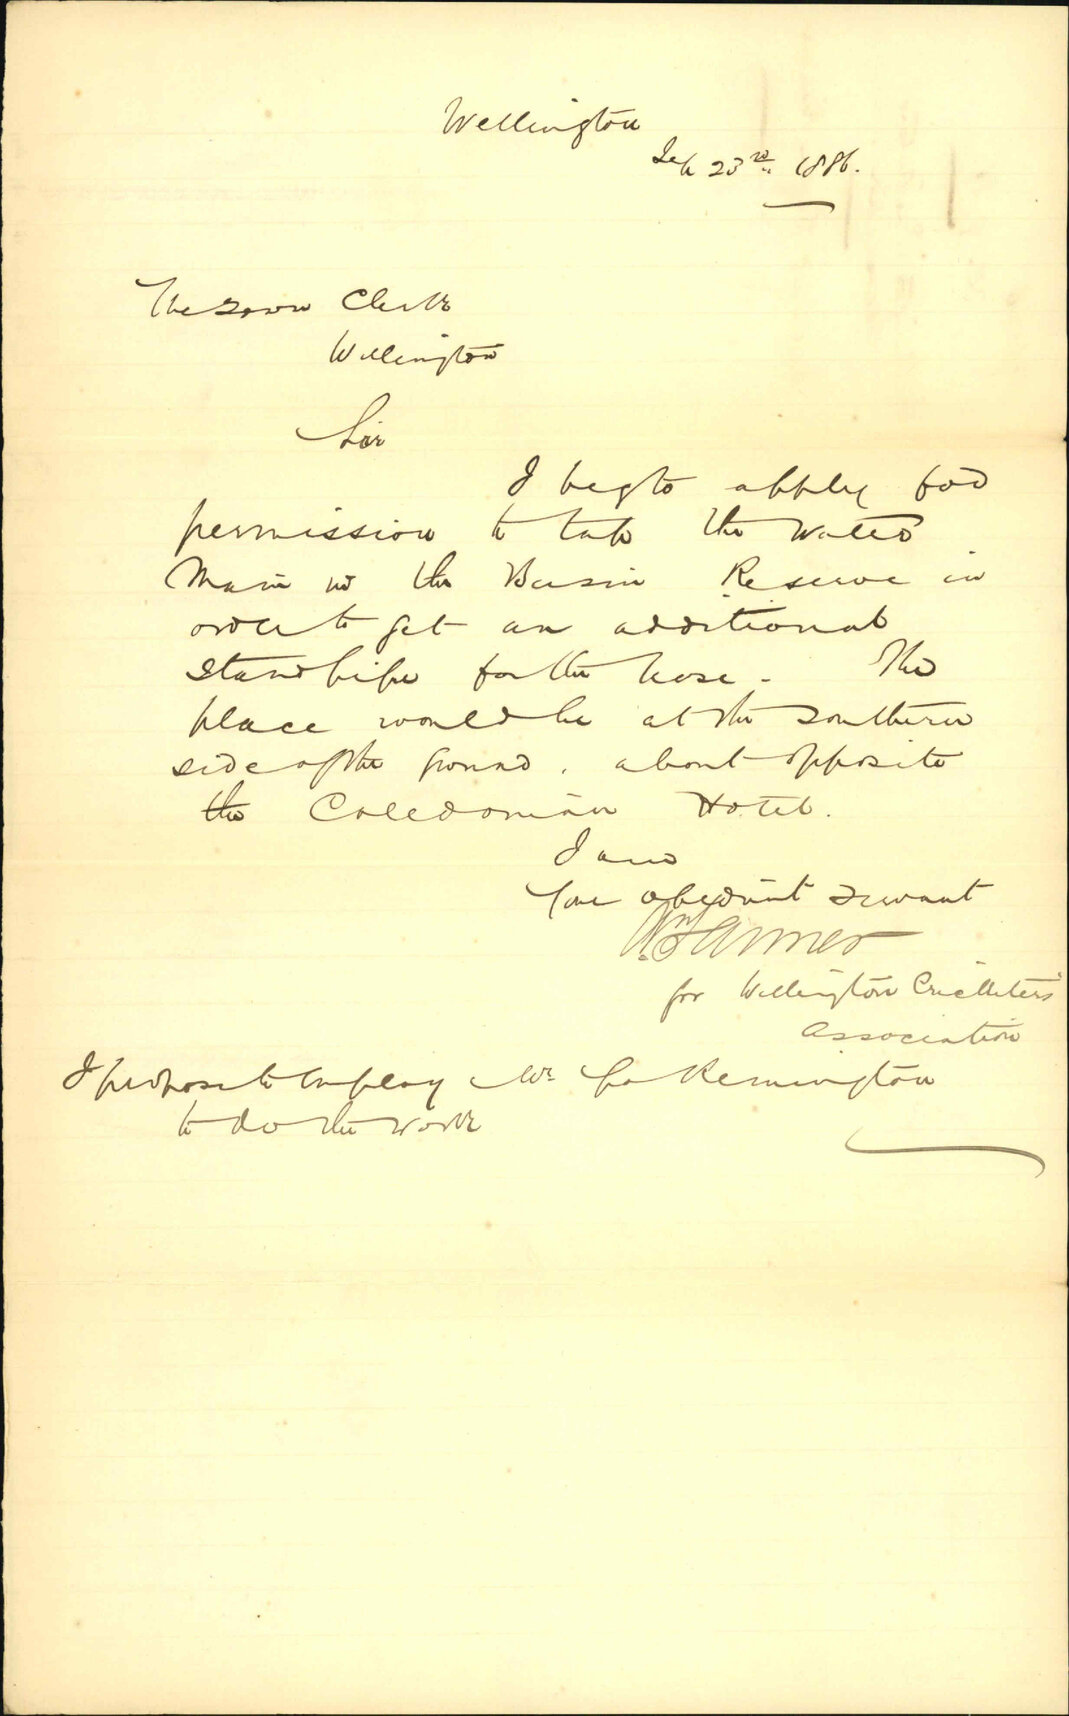 Wellington
Sep 23rd 1886.
The Town Clerk
Wellington
Sir
I beg to apply for
permission to tap the water
Main in the Basin Reserve in
order to get an additional
standpipe for the hose. The
place would be at the southern
side of the ground. about opposite
the Caledonian Hotel.
I am
Your obedient servant
for Wellington Cricketers'
Association
I propose to employ Mr Remington
to do the work